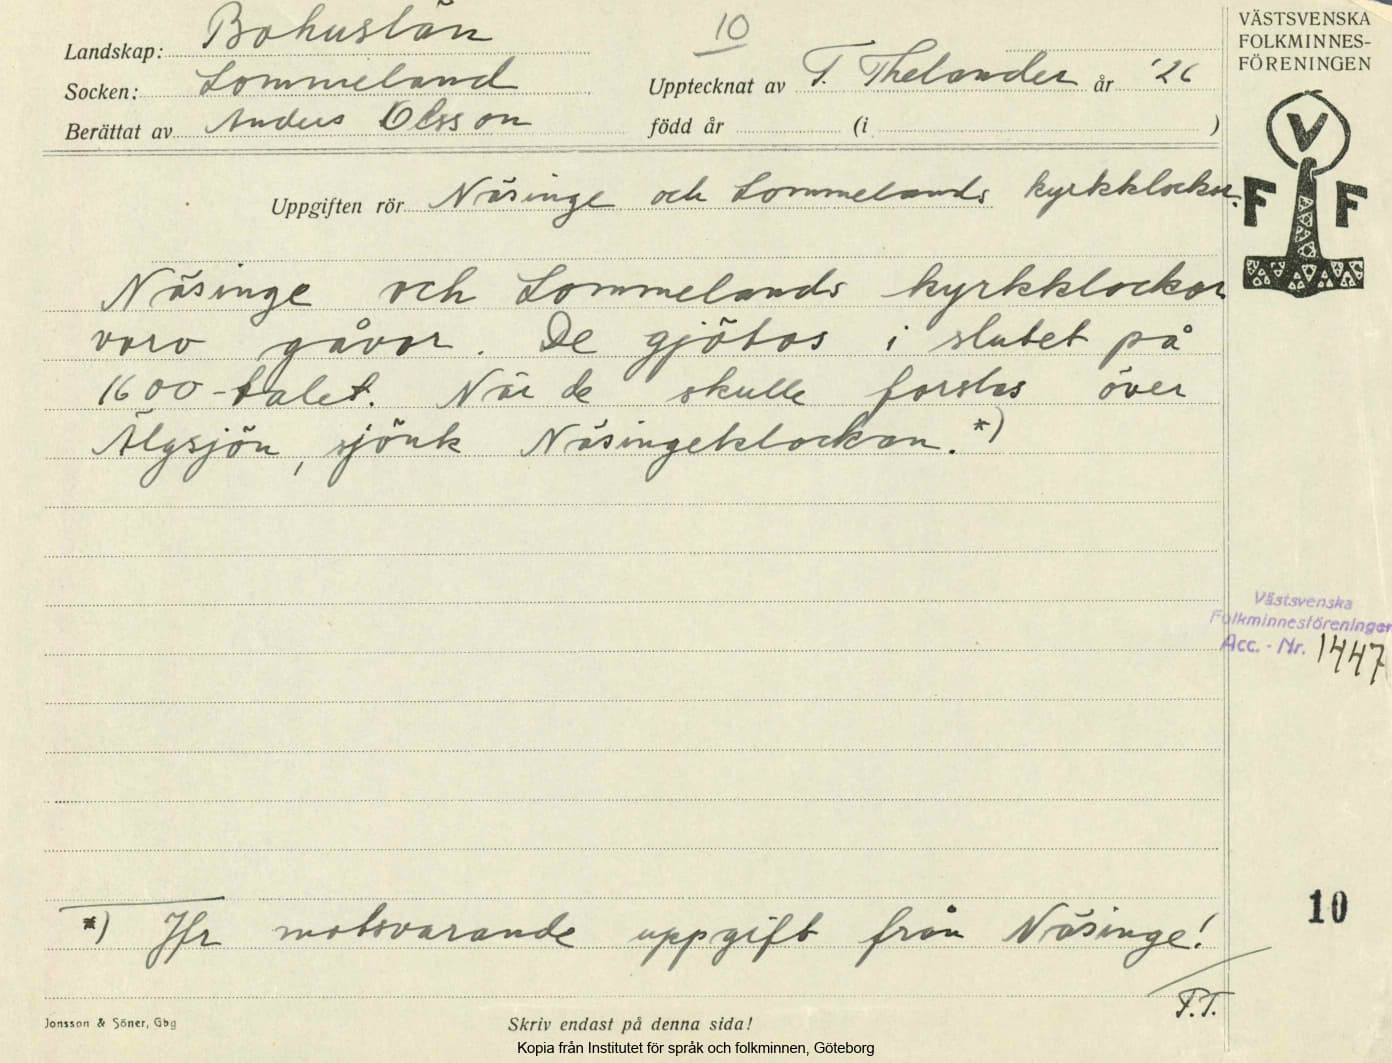 Landskap: Bohuslän
10
VÄSTSVENSKA
FOLKMINNES-
FÖRENINGEN
Socken: Lommeland
Upptecknat av F. Thelander år '26
Berättat av Anders Olsson
född år (i )
V
F F
Uppgiften rör Näsinge och Lommelands kyrkklockor.
Näsinge och Lommelands kyrkklockor
voro gåvor. De gjötos i slutet på
1600-talet. När de skulle forslas över
Älgsjön, sjönk Näsingeklockan.*)
Västsvenska
Folkminnesföreningen
Acc. - Nr. 1447
10
*) Jfr motsvarande uppgift från Näsinge!
F.T.
Jonsson & Söner, Gbg
Skriv endast på denna sida!
Kopia från Institutet för språk och folkminnen, Göteborg